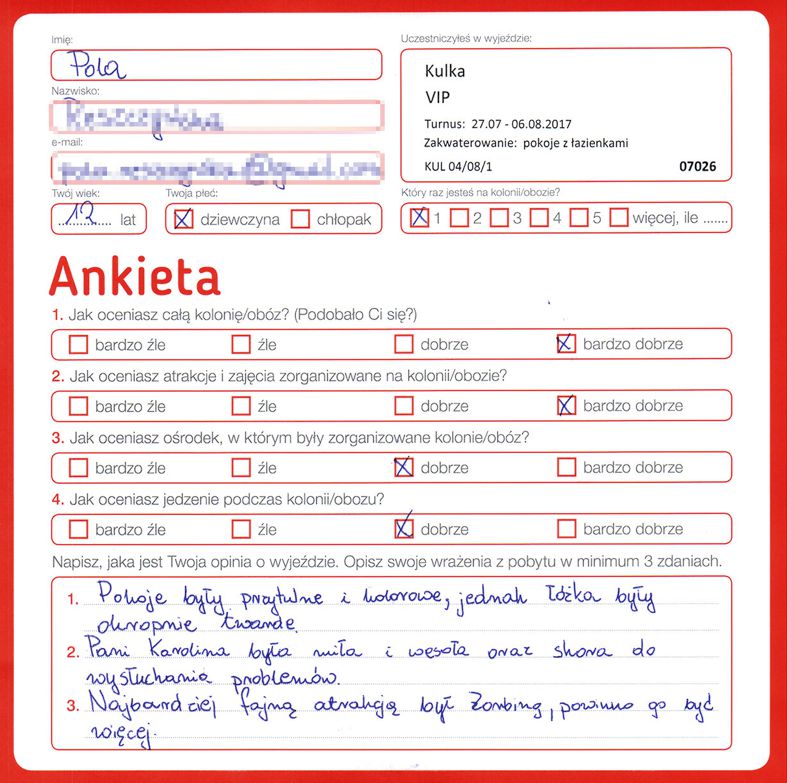 Imię:
Pola
Nazwisko:
e-mail:
Twój wiek:
12 lat
Twoja płeć:
dziewczyna chłopak
Uczestniczyłeś w wyjeździe:
Kulka
VIP
Turnus: 27.07 - 06.08.2017
Zakwaterowanie: pokoje z łazienkami
KUL 04/08/1 07026
Który raz jesteś na kolonii/obozie?
1 2 3 4 5 więcej, ile .......
Ankieta
1. Jak oceniasz całą kolonię/obóz? (Podobało Ci się?)
bardzo źle źle dobrze bardzo dobrze
2. Jak oceniasz atrakcje i zajęcia zorganizowane na kolonii/obozie?
bardzo źle źle dobrze bardzo dobrze
3. Jak oceniasz ośrodek, w którym były zorganizowane kolonie/obóz?
bardzo źle źle dobrze bardzo dobrze
4. Jak oceniasz jedzenie podczas kolonii/obozu?
bardzo źle źle dobrze bardzo dobrze
Napisz, jaka jest Twoja opinia o wyjeździe. Opisz swoje wrażenia z pobytu w minimum 3 zdaniach.
1. Pokoje były przytulne i kolorowe, jednak łóżka były
okropnie twarde.
2. Pani Karolina była miła i wesoła oraz skora do
wysłuchania problemów.
3. Najbardziej fajną atrakcją był Zorbing, powinno go być
więcej.